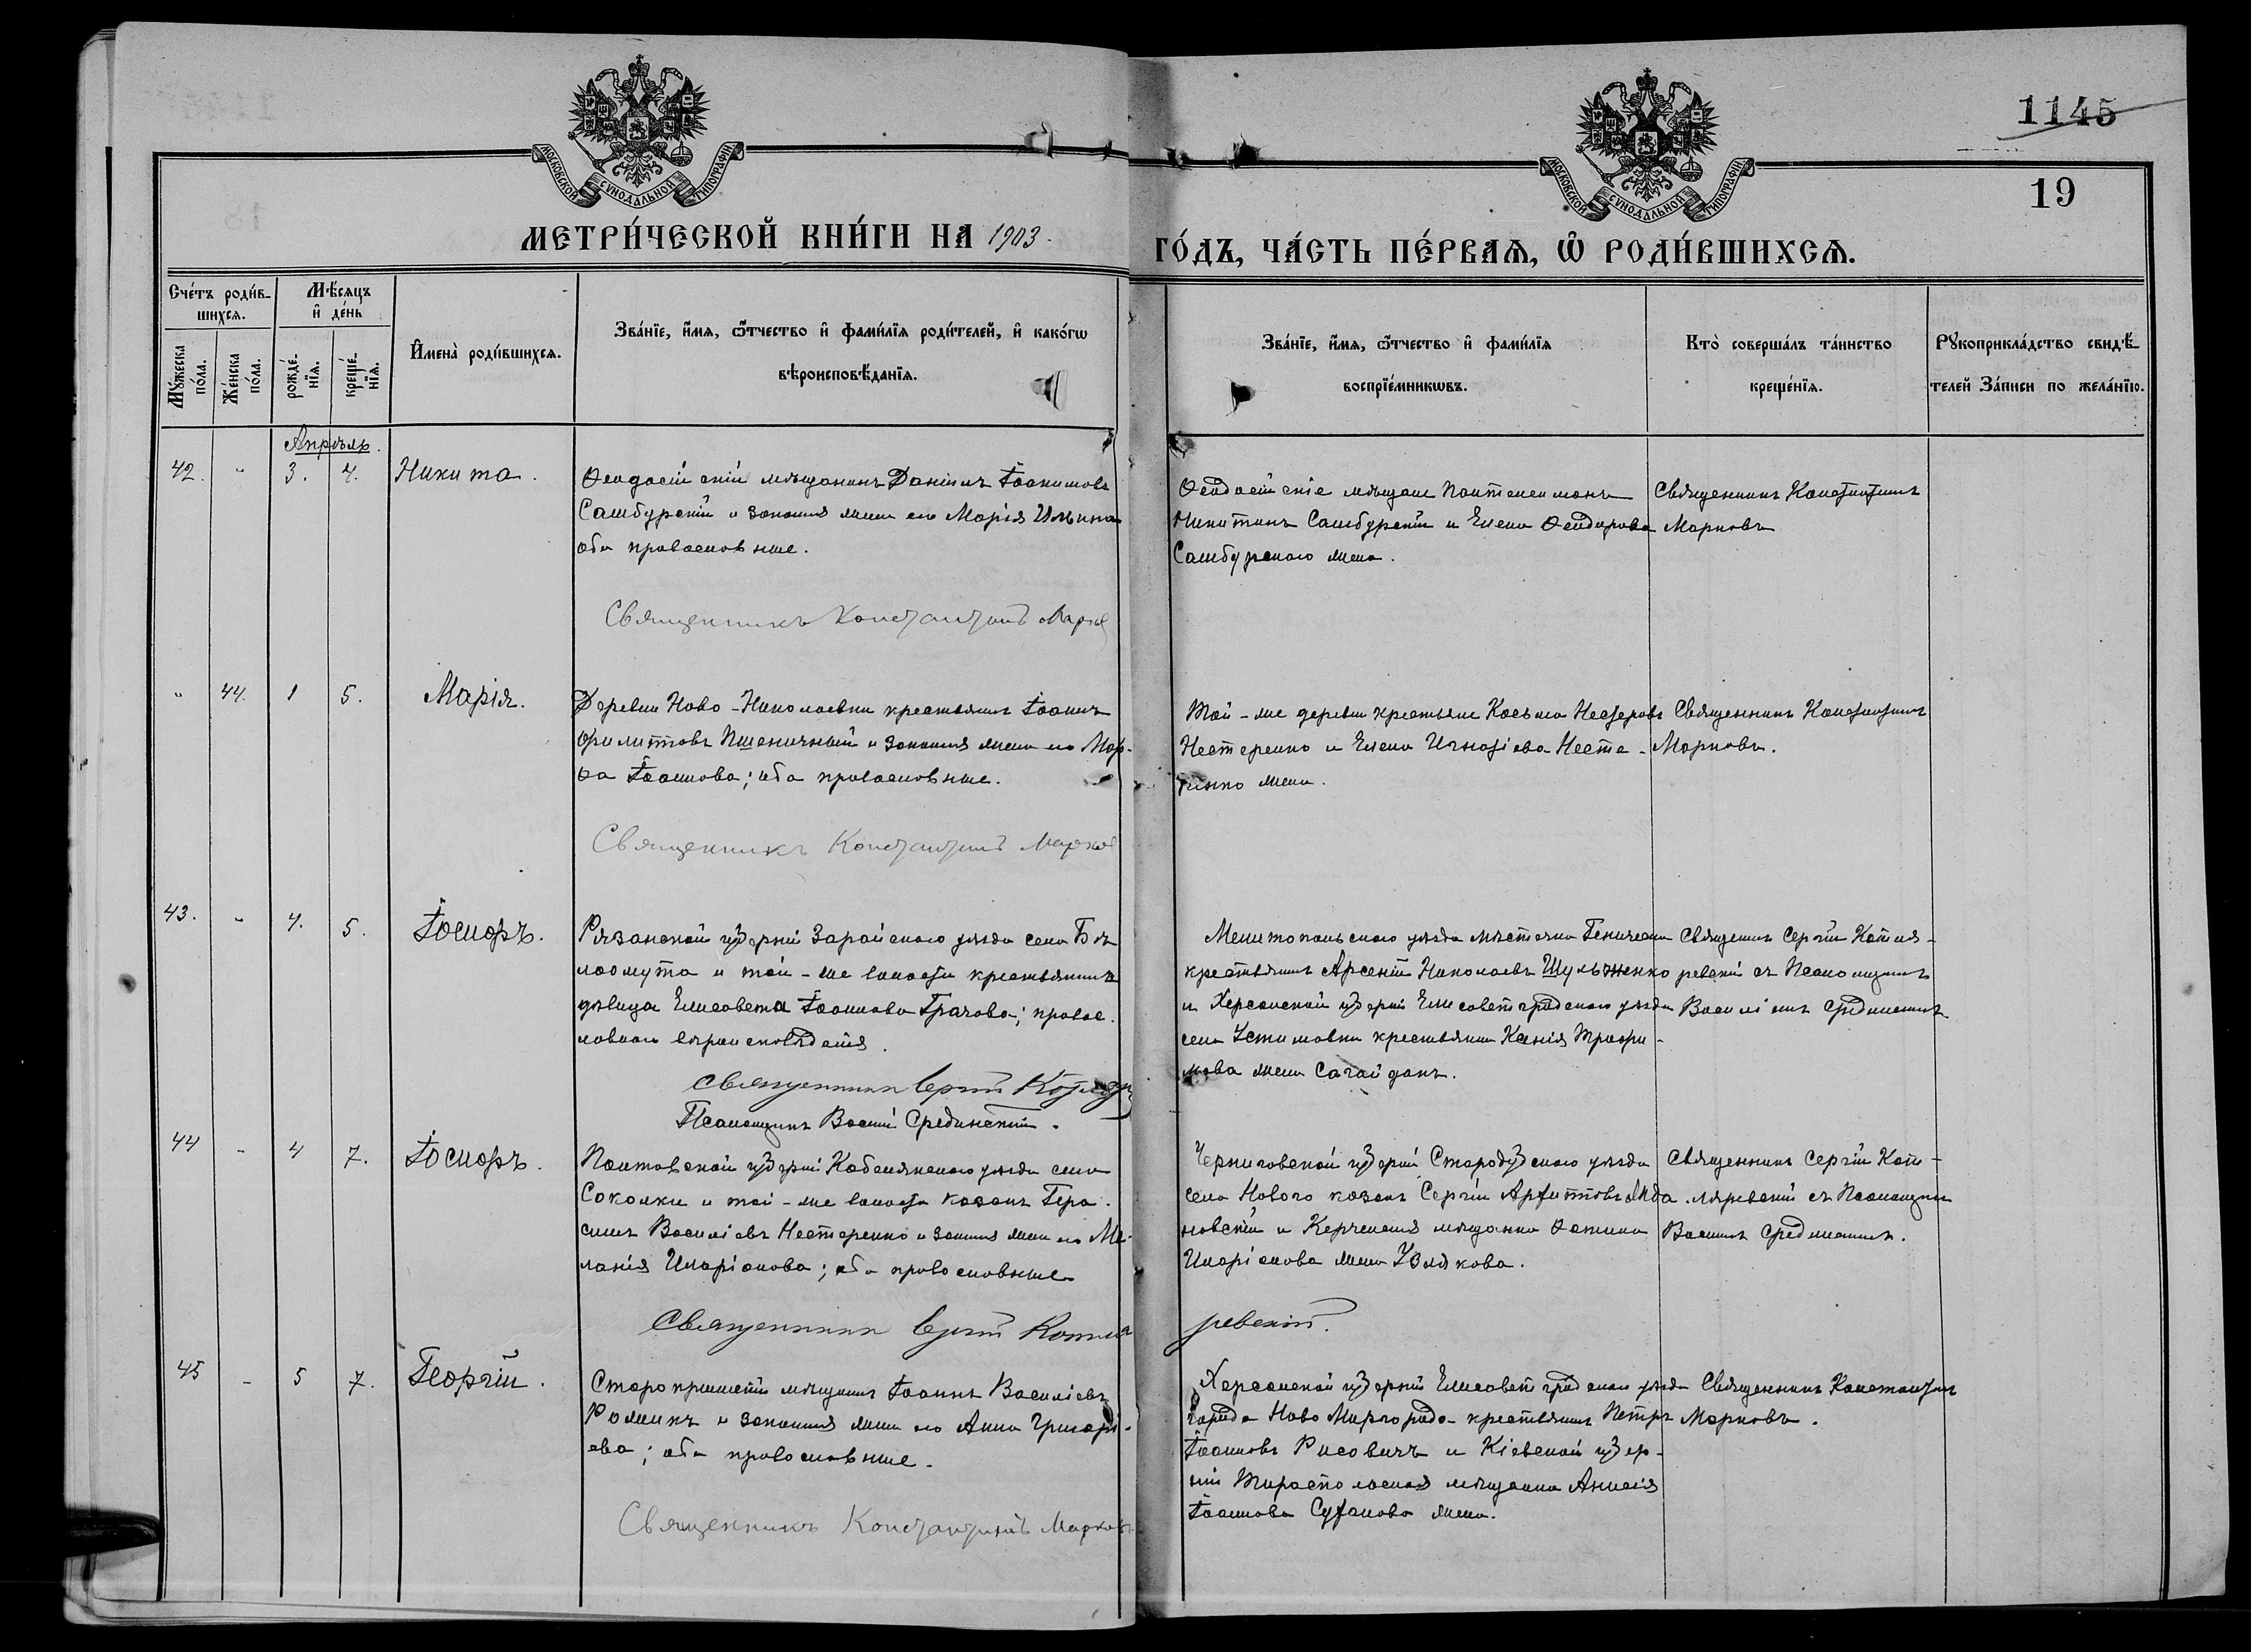 1145
19
МОСКОВСКОЙ СѴНОДАЛЬНОЙ ТИПОГРАФІИ
МОСКОВСКОЙ СѴНОДАЛЬНОЙ ТИПОГРАФІИ
МЕТРИ́ЧЕСКОЙ КНИ́ГИ НА 1903.
ГО́ДЪ, ЧА́СТЬ ПЕ́РВАѦ, Ѽ РОДИ́ВШИХСѦ.
Сче́тъ роди́в-
шихсѧ.
Мꙋ́жеска
по́ла.
Же́нска
по́ла.
Мѣ́сѧцъ
и҆ де́нь
рожде́-
нїѧ.
креще́-
нїѧ.
И҆мена̀ роди́вшихсѧ.
Зва́нїе, и҆́мѧ, ѻ҆́тчество и҆ фами́лїѧ роди́телей, и҆ како́гѡ
вѣроисповѣ́данїѧ.
Зва́нїе, и҆́мѧ, ѻ҆́тчество и҆ фами́лїѧ
воспрїе́мникѡвъ.
Кто̀ соверша́лъ та́инство
креще́нїѧ.
Рꙋкоприкла́дство свидѣ́-
телей За́писи по жела́нїю.
Апрѣль.
42. " 3. 4. Никита.
Ѳеодосійскій мѣщанинъ Даніилъ Іоакимовъ
Самбурскій и законная жена его Марія Ильина
оба православные.
Священникъ Константинъ Марков
Ѳеодосійскіе мѣщане Пантелеимонъ
Никитинъ Самбурскій и Елена Ѳеодорова
Самбурскаго жена.
Священникъ Константинъ
Марковъ
" 44. 1 5. Марія.
Деревни Ново-Николаевки крестьянинъ Іоаннъ
Филипповъ Пшеничный и законная жена его Мар-
ѳа Іоаннова; оба православные.
Священникъ Константинъ Марков
Той-же деревни крестьяне Косьма Несторовъ
Нестеренко и Елена Игнатіева Несте-
ренко жена.
Священникъ Константинъ
Марковъ.
43. " 4. 5. Іосифъ.
Рязанской губерніи Зарайскаго уѣзда села Бѣ-
лоомута и той-же волости крестьянинъ
дѣвица Елисавета Іоаннова Грачова; правос-
лавнаго вѣроисповѣданія.
Священникъ Сергій
Псаломщикъ Василій Срединскій.
Мелитопольскаго уѣзда мѣстечка Геническа
крестьянинъ Арсеній Николаевъ Шульженко
и Херсонской губерніи Елисаветградскаго уѣзда
села Устимовки крестьянки Ксенія Трофи-
мова жена Сагайдакъ.
Священникъ Сергій Котля-
ревскій съ Псаломщикомъ
Василіемъ Срединскимъ
44 - 4 7. Іосифъ.
Полтавской губерніи Кобелякскаго уѣзда села
Соколки и той-же волости козакъ Гера-
симъ Василіевъ Нестеренко и законная жена его Ме-
ланія Иларіонова; оба православные
Священникъ Сергій Котля
ревскій.
Черниговской губерніи Стародубскаго уѣзда
села Новаго козакъ Сергій
новскій и Керченская мѣщанка Фотина
Иларіонова жена
Священникъ Сергій Кот-
ляревскій съ Псаломщикомъ
Василіемъ Срединскимъ.
45 - 5 7. Георгій.
Старокрымскій мѣщанинъ Іоаннъ Василіевъ
и законная жена его Анна Григорі-
ева; оба православные.
Священникъ Константинъ Марковъ
Херсонской губерніи Елисаветградскаго уѣзда
города Ново Миргорода крестьянинъ Петръ
Іоанновъ Рисовичъ и Кіевской губер-
ніи Тираспольская мѣщанка Анисія
Іоаннова жена.
Священникъ Константинъ
Марковъ.